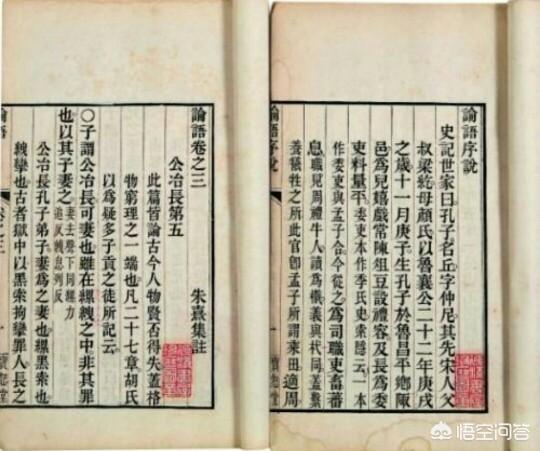 論語序說
史記世家曰孔子名丘字仲尼其先宋人父
叔梁紇母顏氏以魯襄公二十二年庚戌
之歲十一月庚子生孔子於魯昌平鄉陬
邑為兒嬉戲常陳俎豆設禮容及長為委
吏料量平委吏本作季氏史索隱云一本
作委吏與孟子合今從之為司職吏畜蕃
息職見周禮牛人讀為樴義與杙同蓋繫
養犧牲之所此官即孟子所謂乘田適周
論語序說
論語卷之三
朱熹集註
公冶長第五
此篇皆論古今人物賢否得失蓋格
物窮理之一端也凡二十七章胡氏
以為疑多子貢之徒所記云
○子謂公冶長可妻也雖在縲絏之中非其罪
也以其子妻之妻去聲下同縲力
追反絏息列反
公冶長孔子弟子妻為之妻也縲黑索也
絏攣也古者獄中以黑索拘攣罪人長之
論語
卷之三
悟空问答